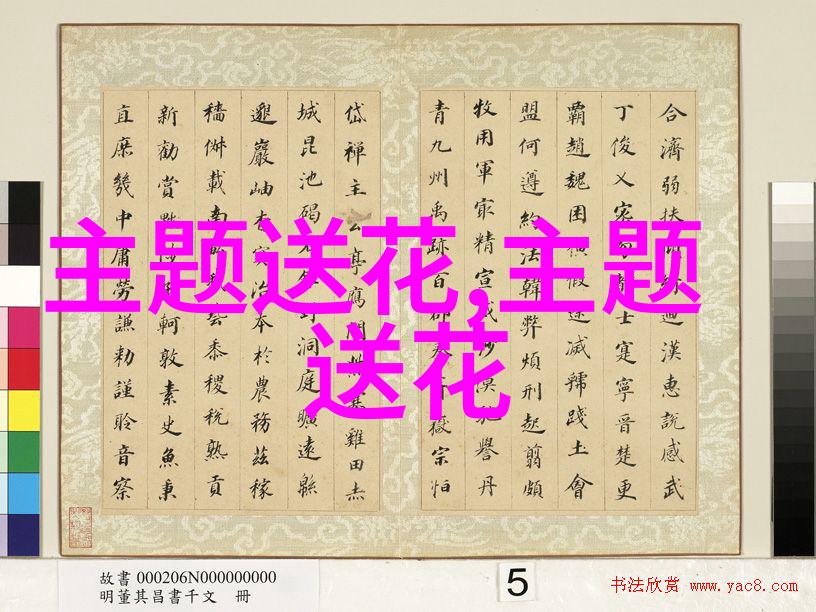 合濟弱扶迴漢惠說感武
丁俊乂密勿士寔寧晉楚更
霸趙魏困橫假途滅虢踐土會
盟何遵約法韓弊煩刑起翦頗
牧用軍最精宣威沙漠馳譽丹
青九州禹跡百郡嶽宗恒
岱禪主云亭鴈門塞雞田赤
城昆池碣洞庭曠遠緜
邈巖岫杳冥治本於農務茲稼
穡俶載南黍稷稅熟貢
新勸賞軻敦素史魚秉
直庶幾中庸勞謙勑謹聆音察
主题送花,主题
送花
故書 000206N000000000
明董其昌書千文 冊
5
书法欣赏 www.yac8.com